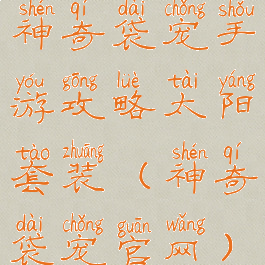 shén qí dài chǒng shǒu
神奇袋宠手
yóu gōng lüè tài yáng
游攻略太阳
tào zhuāng shén qí
套装(神奇
dài chǒng guān wǎng
袋宠官网)